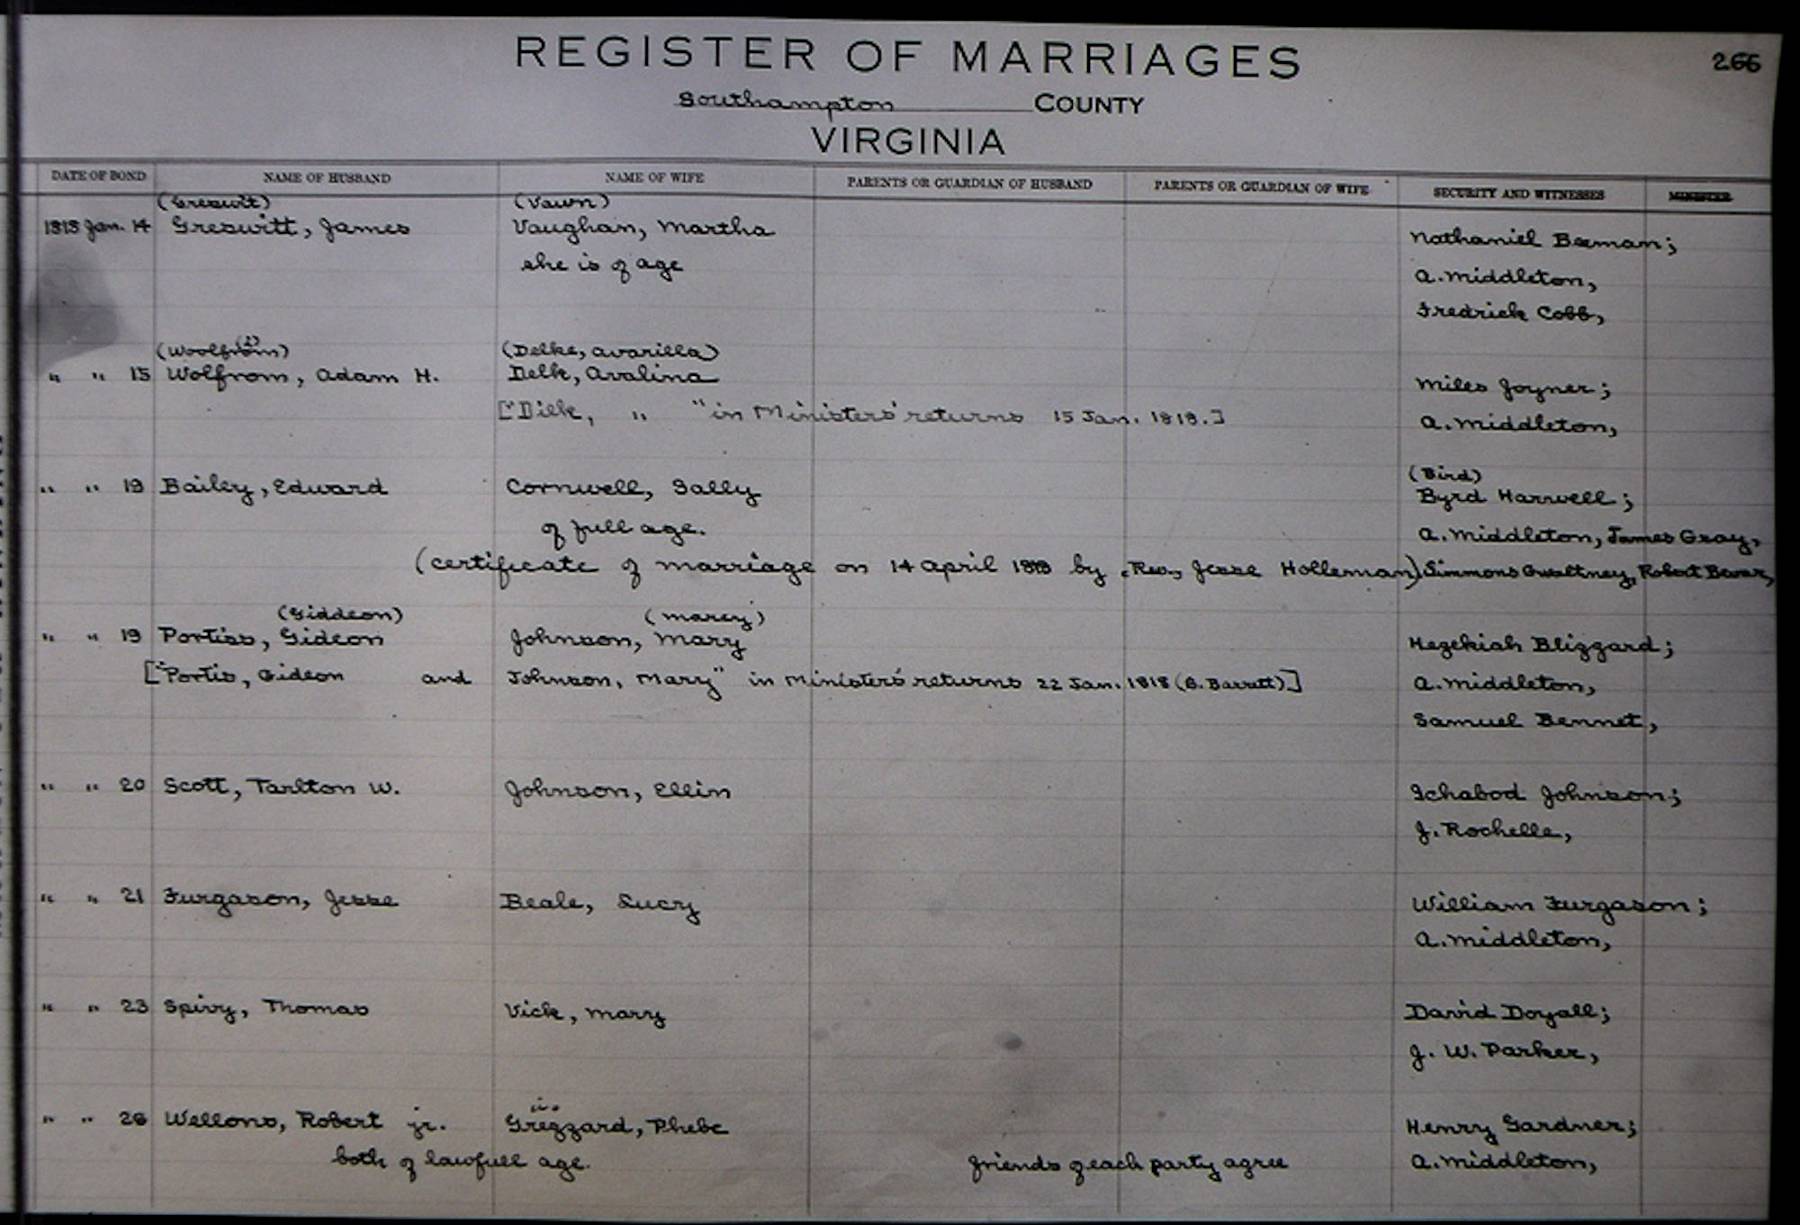 REGISTER OF MARRIAGES
266
Southampton COUNTY
VIRGINIA
DATE OF BOND NAME OF HUSBAND NAME OF WIFE PARENTS OR GUARDIAN OF HUSBAND PARENTS OR GUARDIAN OF WIFE SECURITY AND WITNESSES MINISTER
(Greswit) (Vawn)
1818 Jan. 14 Greswitt, James Vaughan, Martha Nathaniel Beeman;
she is of age A. Middleton,
Fredrick Cobb,
(Woolfrom) (Delke, Avarilla)
" " 15 Wolfrom, Adam H. Delk, Avalina Miles Joyner;
["Dilk, " " in Ministers' returns 15 Jan. 1818.] A. Middleton,
(Bird)
" " 19 Bailey, Edward Cornwell, Sally Byrd Harwell;
of full age. A. Middleton, James Gray,
(certificate of marriage on 14 April 1818 by Rev. Jesse Holleman) Simmons Gwaltney, Robert
(Giddeon) (Marcy)
" " 19 Portiss, Gideon Johnson, Mary Hezekiah Blizzard;
["Portis, Gideon and Johnson, Mary" in Ministers' returns 22 Jan. 1818 (B. Barrett)] A. Middleton,
Samuel Bennet,
" " 20 Scott, Tarlton W. Johnson, Ellin Ichabod Johnson;
J. Rochelle,
" " 21 Furgason, Jesse Beale, Lucry William Furgason;
A. Middleton,
" " 23 Spivy, Thomas Vick, Mary David Doyall;
J. W. Parker,
" " 26 Wellons, Robert jr. Greggard, Phebe Henry Gardner;
both of lawfull age. friends of each party agree A. Middleton,